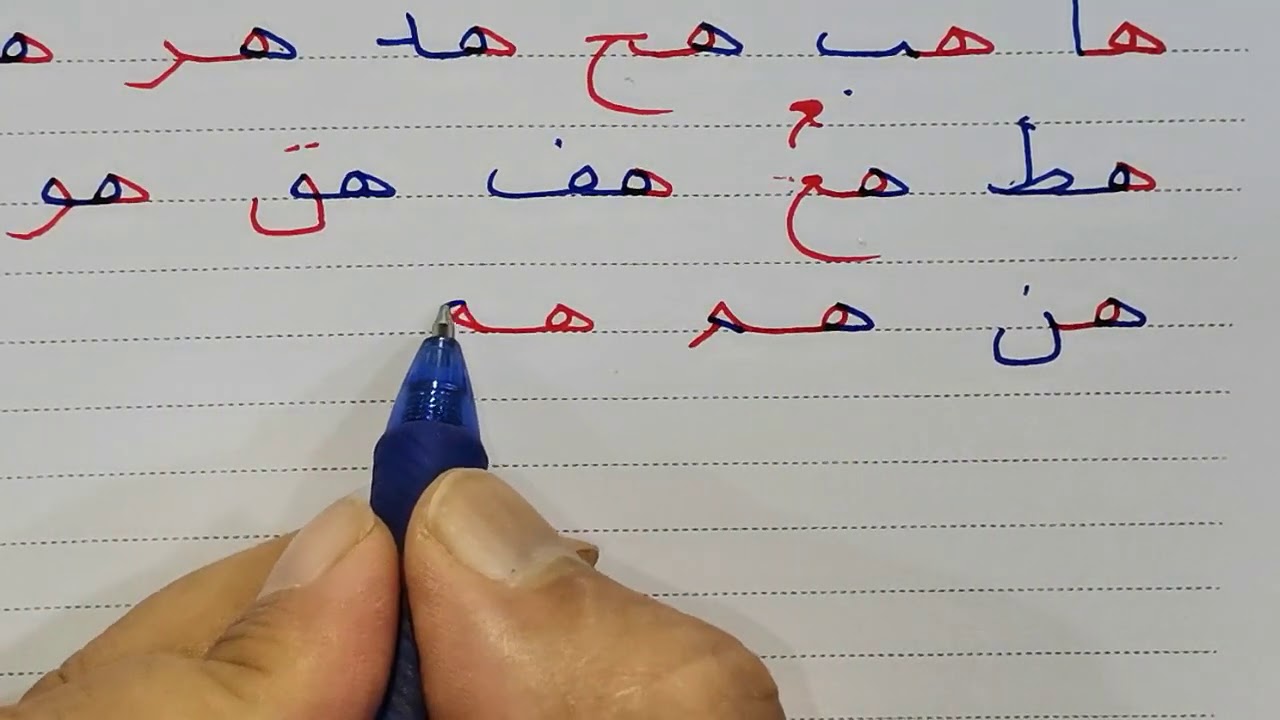 ها هب هح هد هر
هط هع هف هق هو
هن هم هه